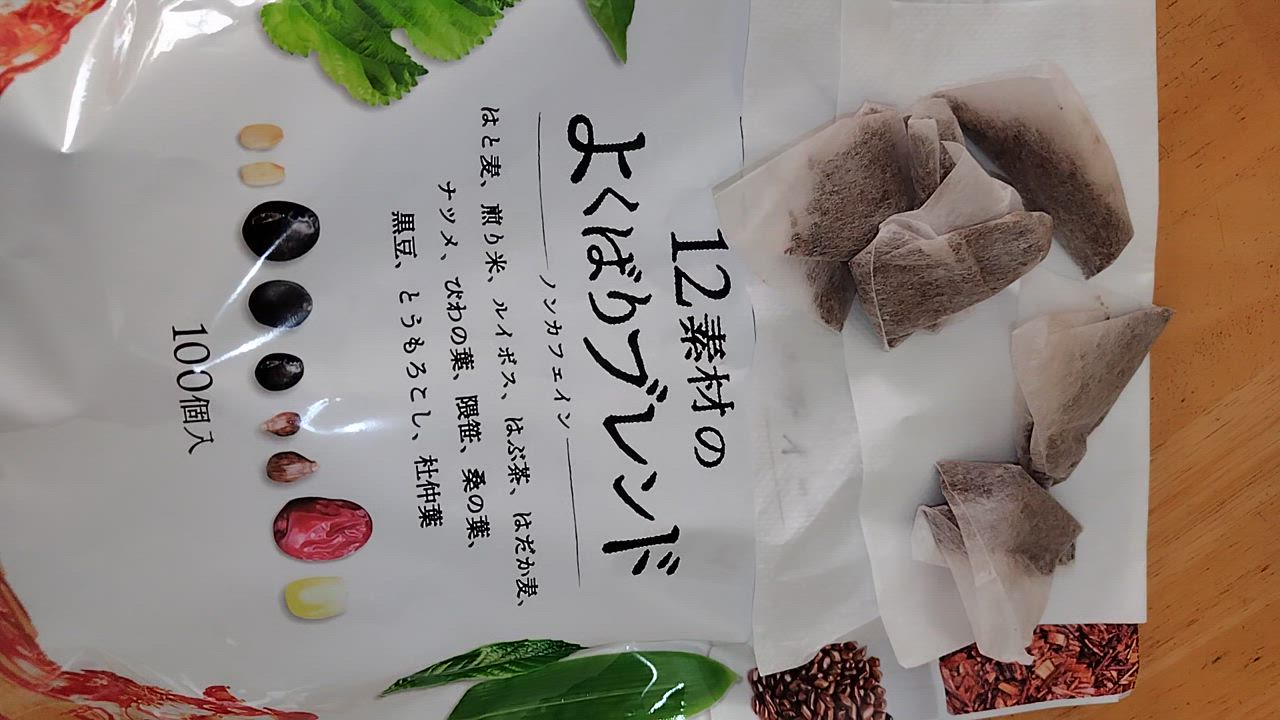 12素材の
よくばりブレンド
ノンカフェイン
はと麦、煎り米、ルイボス、はぶ茶、はだか麦、
ナツメ、びわの葉、隈笹、桑の葉、
黒豆、とうもろこし、杜仲葉
100個入